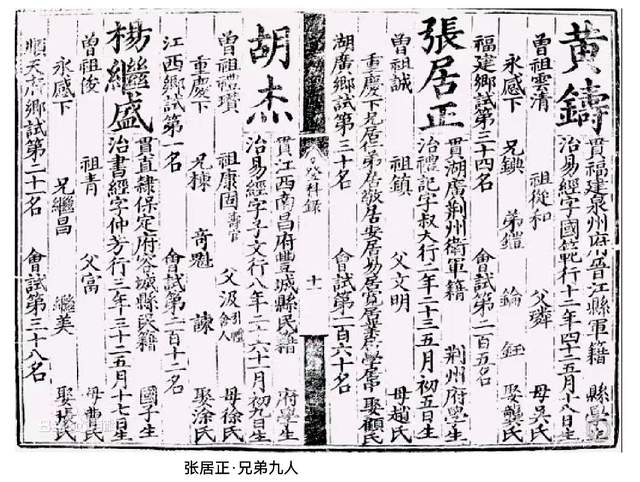 黃鑄
貫福建泉州府晉江縣軍籍 縣學生
治易經字國範行十二年四十二五月十八日生
曾祖雲清 祖從和 父璘 母吳氏
永感下 兄鉷 弟鎧 錀 鈺 娶龔氏
福建鄉試第三十四名 會試第二百五名
張居正
貫湖廣荊州衛軍籍 荊州府學生
治禮記字叔大行一年二十三五月初五日生
曾祖誠 祖鎮 父文明 母趙氏
重慶下 兄居仁 弟居敬 居安 居易 居寬 娶顧氏
湖廣鄉試第三十名 會試第一百六十名
科錄
十一
胡杰
貫江西南昌府豐城縣民籍 府學生
治易經字子文行八年二十六十一月初九日生
曾祖禮瓊 祖康固 父汲 母徐氏
重慶下 兄棟 奇魁 諫 娶涂氏
江西鄉試第一名 會試第二百十二名
楊繼盛
貫直隸保定府容城縣民籍 國子生
治書經字仲芳行三年三十二五月十七日生
曾祖俊 祖青 父富 母曹氏
永感下 兄繼昌 繼美 娶張氏
順天府鄉試第二十一名 會試第三十八名
张居正·兄弟九人